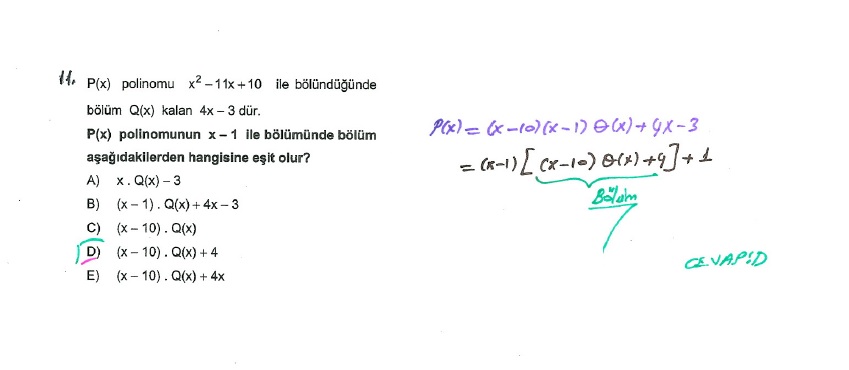 11. P(x) polinomu x² – 11x + 10 ile bölündüğünde
bölüm Q(x) kalan 4x – 3 dür.
P(x) polinomunun x – 1 ile bölümünde bölüm
aşağıdakilerden hangisine eşit olur?
A) x . Q(x) – 3
B) (x – 1) . Q(x) + 4x – 3
C) (x – 10) . Q(x)
D) (x – 10) . Q(x) + 4
E) (x – 10) . Q(x) + 4x
P(x) = (x – 10)(x – 1) Q(x) + 4x – 3
= (x – 1) [ (x – 10) Q(x) + 4 ] + 1
Bölüm
CEVAP:D